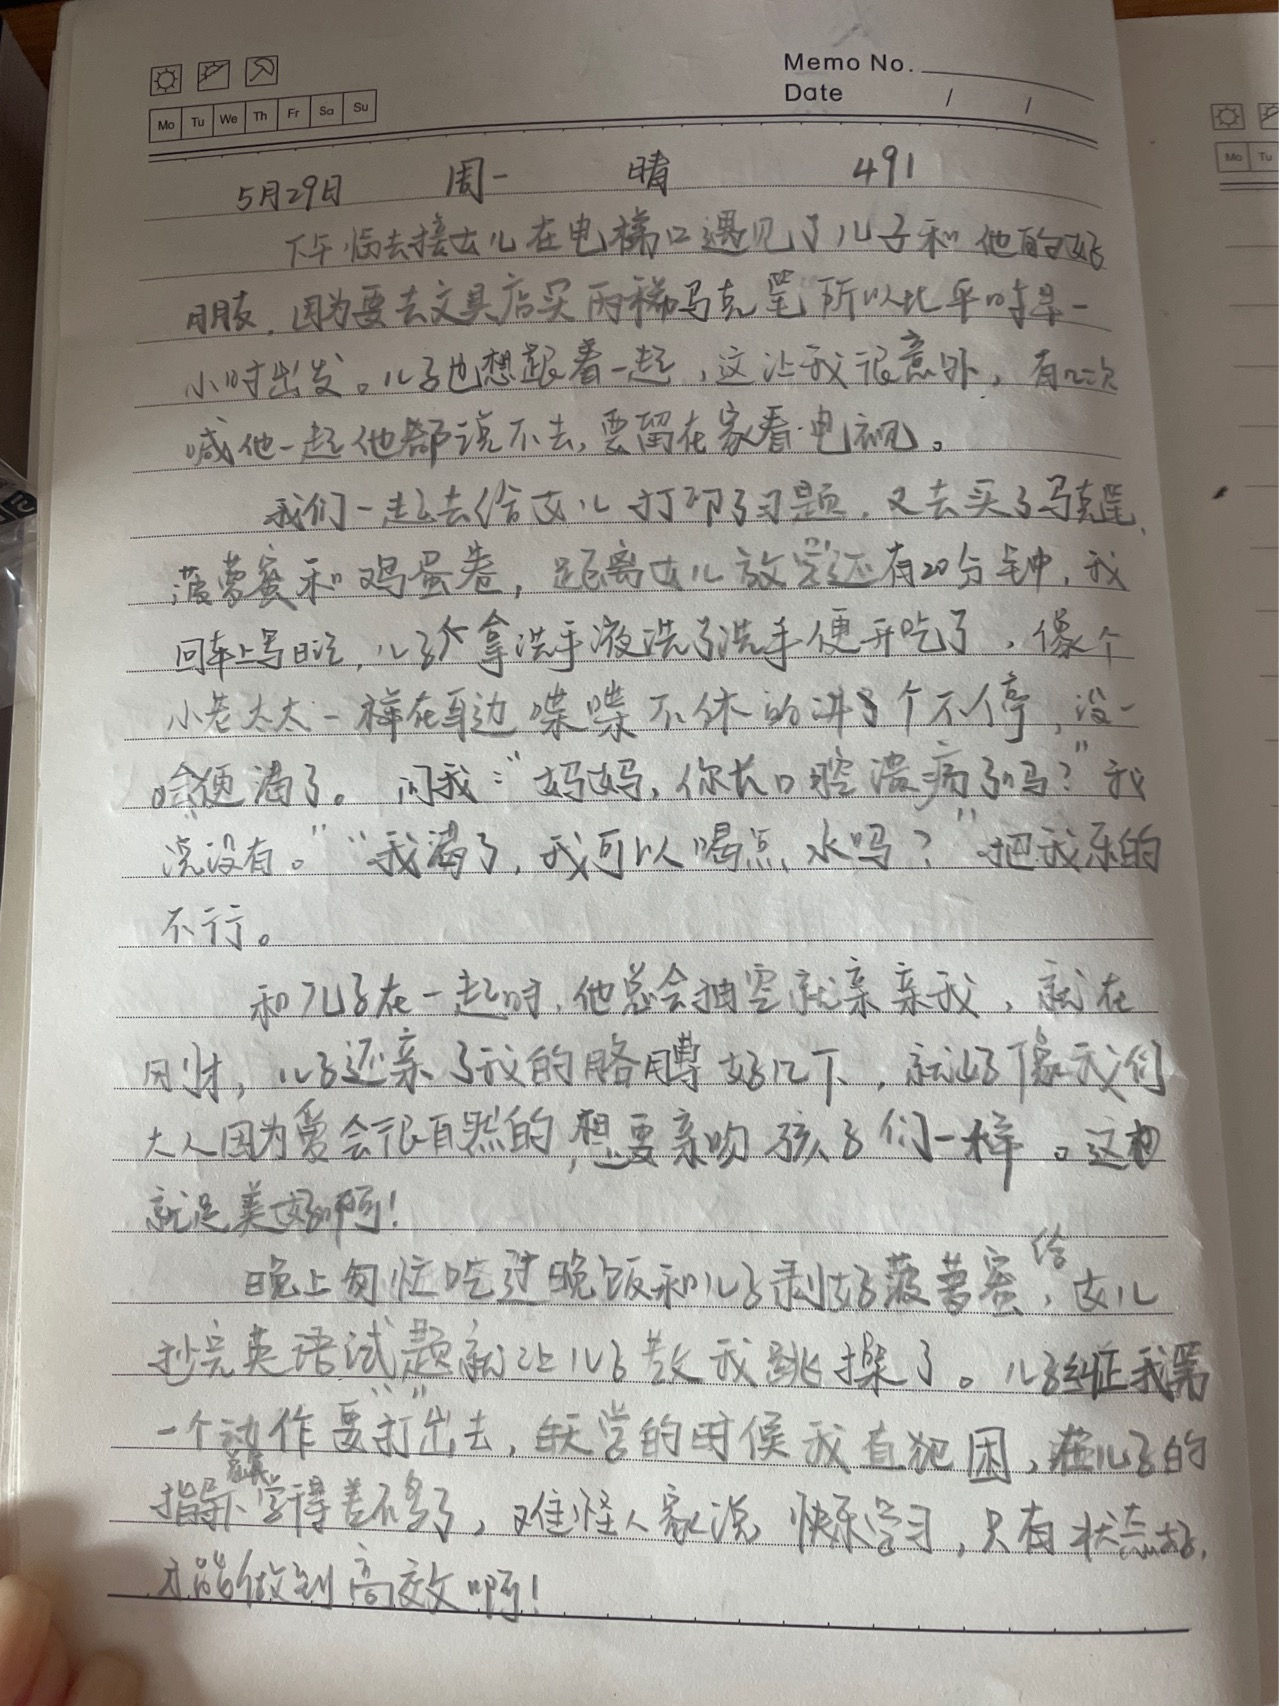 Memo No.
Date / /
Mo Tu We Th Fr Sa Su
Mo Tu
5月29日 周一 晴 491
下午 去接女儿在电梯口遇见了儿子和他的好
朋友,因为要去文具店买两 马克笔所以比平时早一
小时出发。儿子也想跟着一起,这让我很意外,有几次
喊他一起他都说不去,要留在家看电视。
我们一起去给女儿打印了习题,又去买了马克笔、
菠萝蜜和鸡蛋卷,距离女儿放学还有20分钟,我
回车上写日记,儿子 拿洗手液洗了洗手便开吃了,像个
小老太太一样在耳边喋喋不休的讲了个不停,没一
会便渴了。问我:“妈妈,你长口腔溃疡了吗?”我
说没有。”“我渴了,我可以喝点水吗?”把我乐的
不行。
和儿子在一起时,他总会抽空就亲亲我,就在
刚才,儿子还亲了我的胳膊好几下,就好像我们
大人因为爱会很自然的,想要亲吻孩子们一样。这
就是美好啊!
晚上匆忙吃过晚饭和儿子剥好菠萝蜜,给女儿
抄完英语试题就让儿子教我跳操了。儿子纠正我第
一个动作要“打”出去, 学的时候我直犯困,在儿子的
指导下 学得差不多了,难怪人家说快乐学习,只有状态好,
才能做到高效啊!